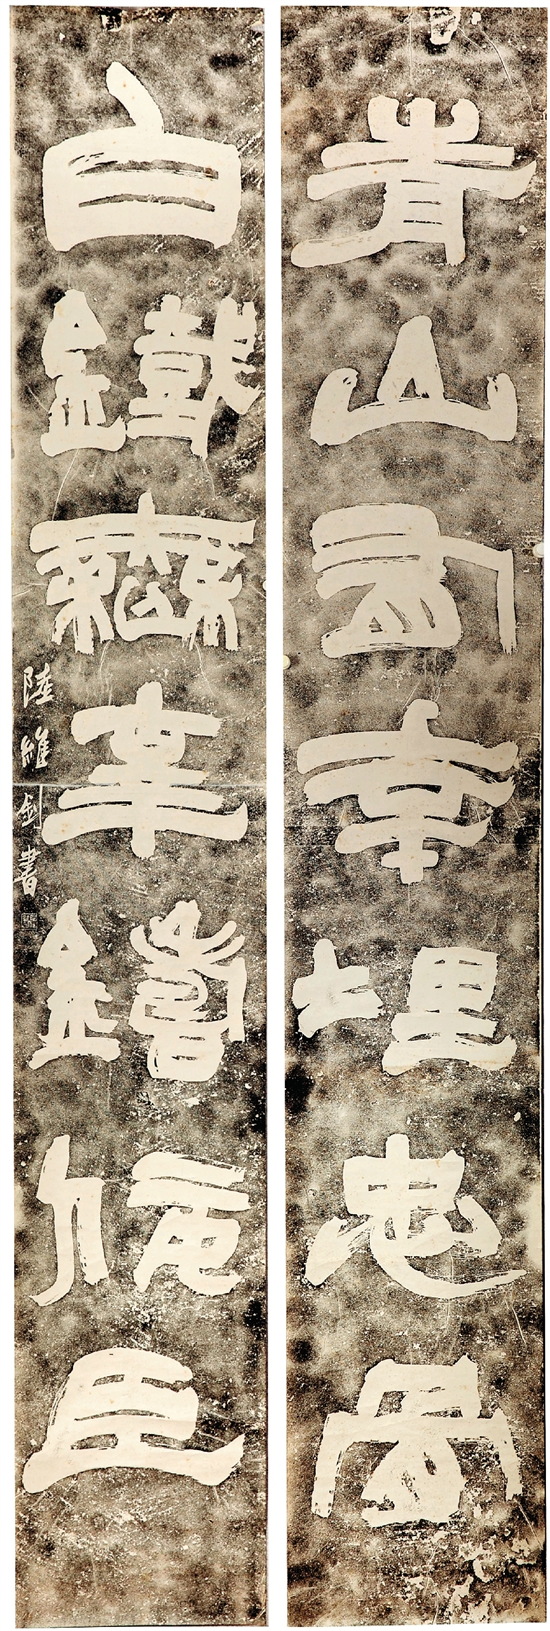 青山有幸埋忠骨
白鐵無辜鑄佞臣
陸維釗書